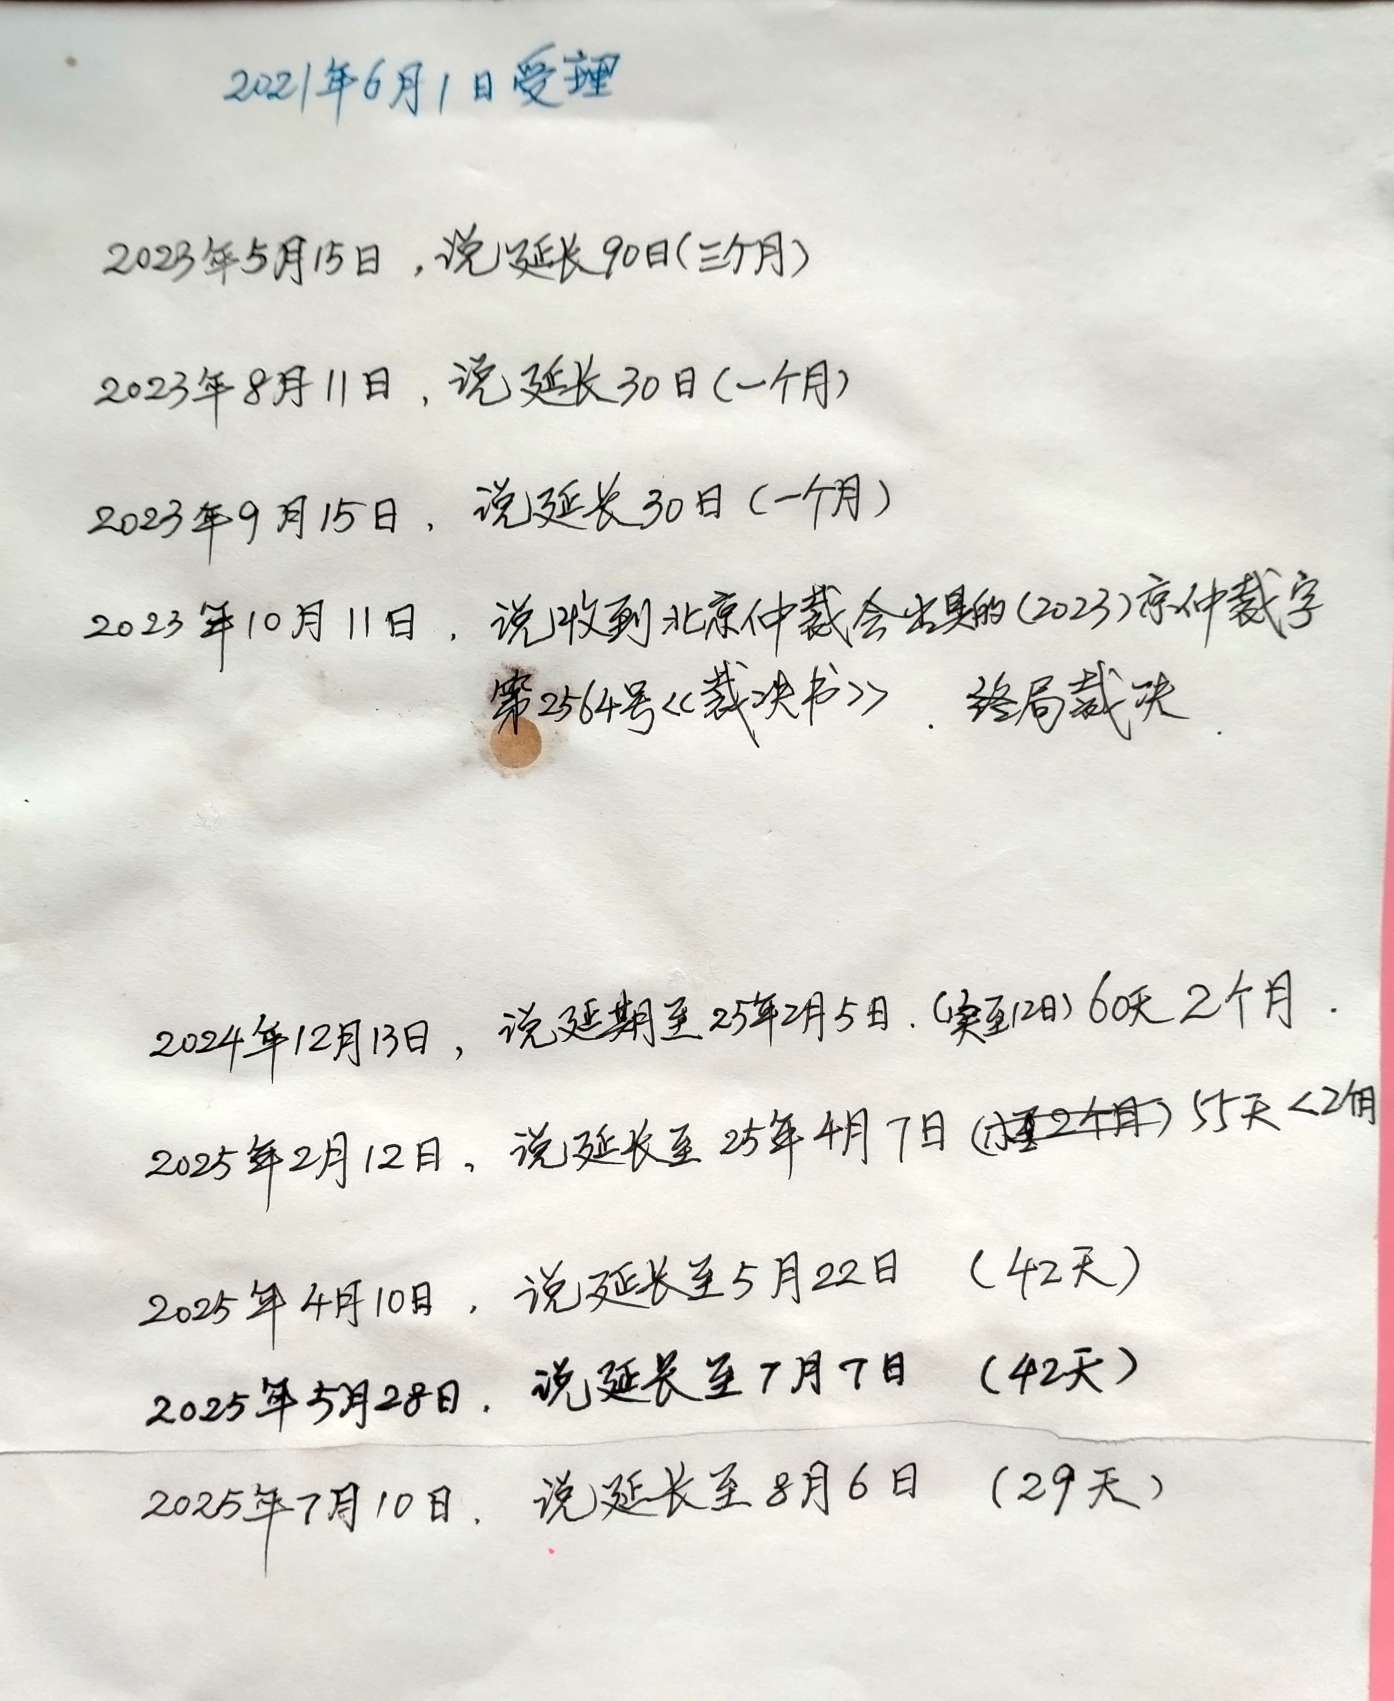 2021年6月1日受理
2023年5月15日，说延长90日(三个月)
2023年8月11日，说延长30日(一个月)
2023年9月15日，说延长30日(一个月)
2023年10月11日，说收到北京仲裁会出具的(2023)京仲裁字
第2564号<<裁决书>>. 终局裁决.
2024年12月13日，说延期至25年2月5日.(实至12日)60天 2个月.
2025年2月12日，说延长至25年4月7日(2个月)55天<2个月
2025年4月10日，说延长至5月22日 (42天)
2025年5月28日，说延长至7月7日 (42天)
2025年7月10日，说延长至8月6日 (29天)